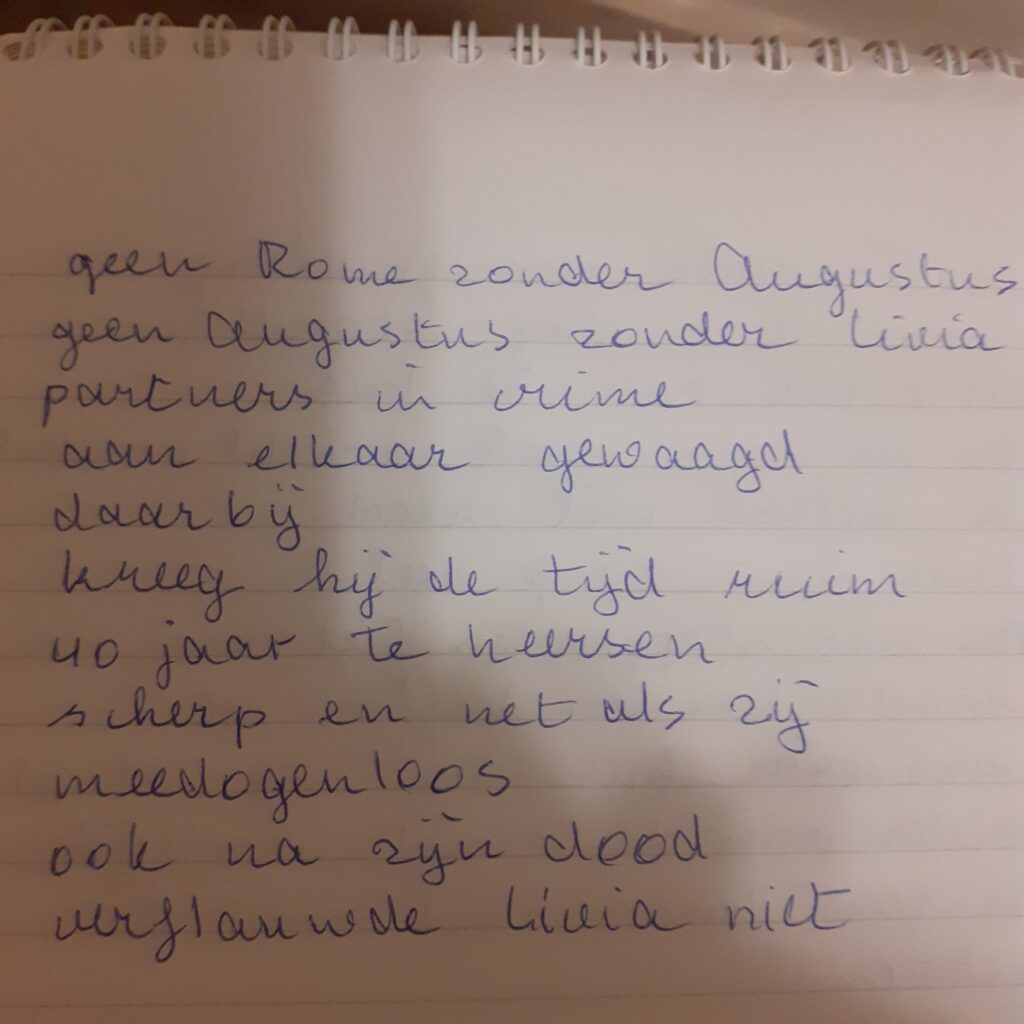 geen Rome zonder Augustus
geen Augustus zonder Livia
partners in crime
aan elkaar gewaagd
daarbij
kreeg hij de tijd ruim
40 jaar te heersen
scherp en net als zij
meedogenloos
ook na zijn dood
verflauwde Livia niet